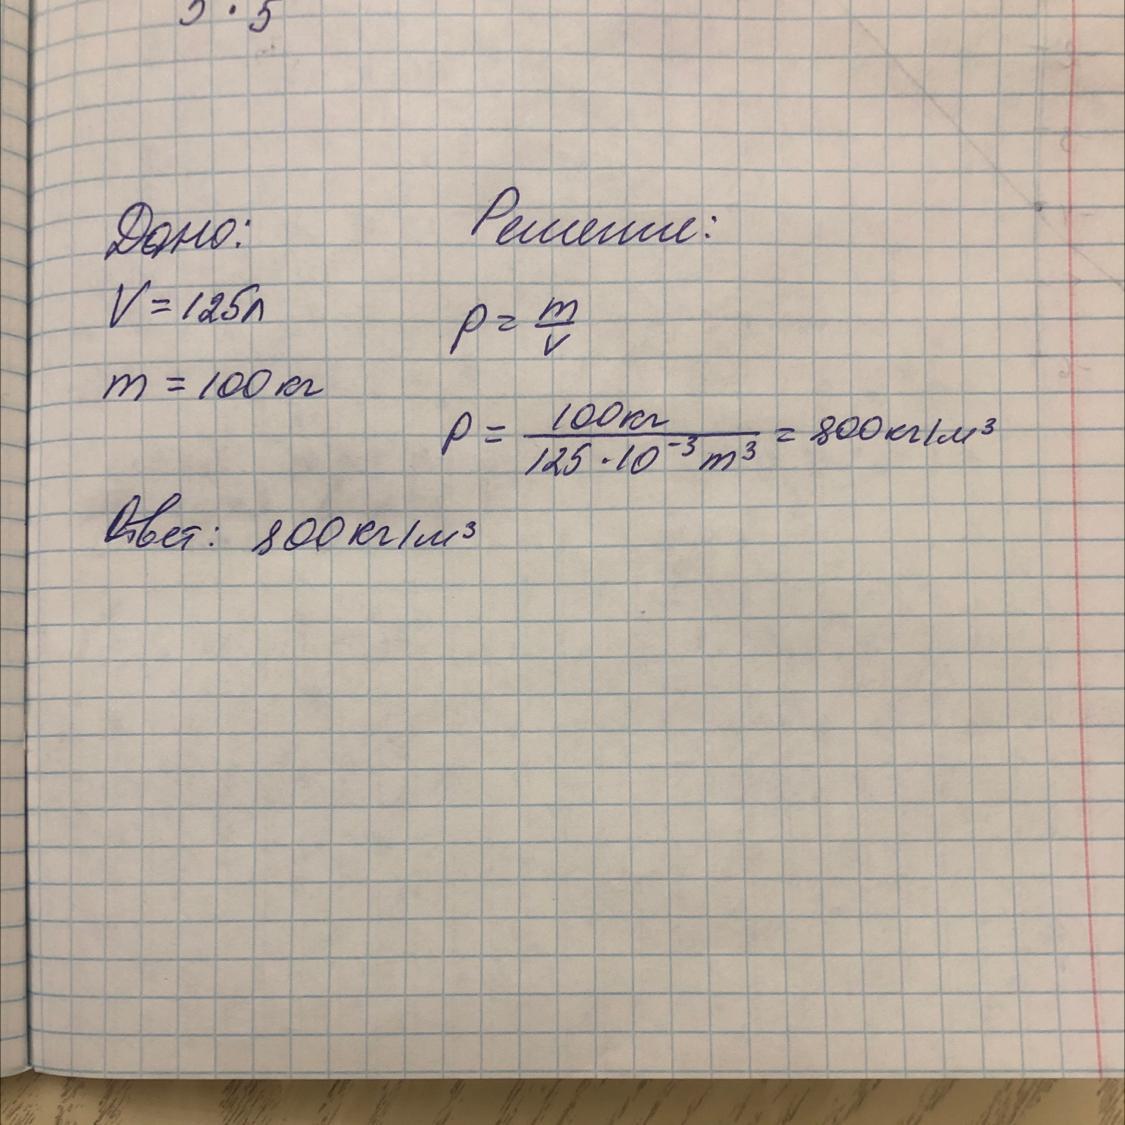 5 · 5
Дано:
V = 125л
m = 100 кг
Решение:
ρ = m/V
ρ = 100кг / 125 · 10⁻³ m³ = 800кг/м³
Ответ: 800кг/м³